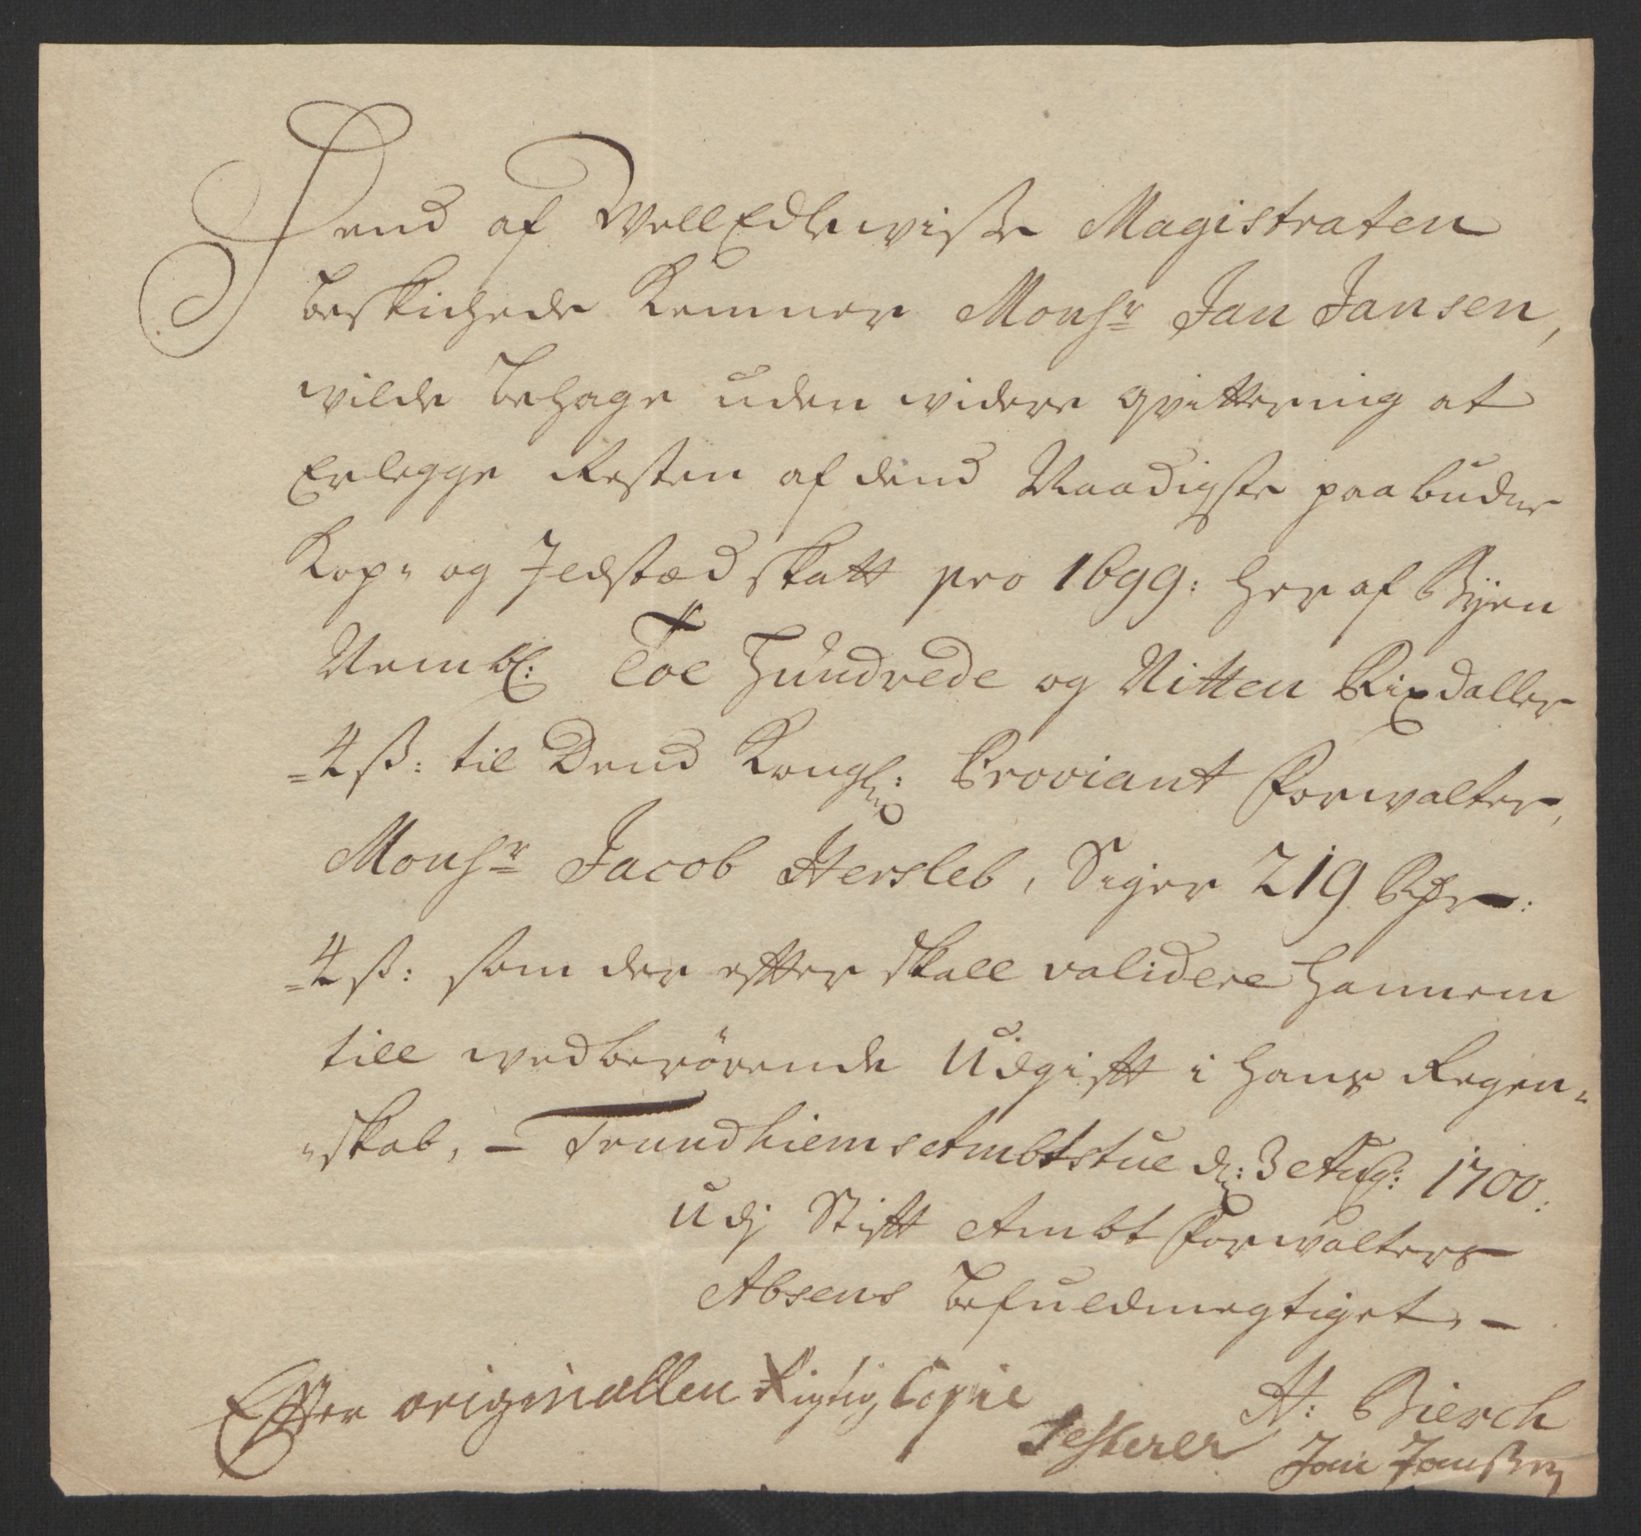 Dend af WellEdlewiise Magistraten
beskichede Kemner Monsr Jan Jansen,
wilde behage uden widere qvittering at
Erlegge Resten af dend Naadigste paabudne
Kop- og Ildstæd skatt pro 1699: her af Byen
Nembl: Toe Hundrede og Nitten Rixdaller
4 ß: til Dend Kongl: Proviant Forwalter,
Monsr Jacob Hersleb, Siger 219 Rdr:
4 ß: som der effter skall validere hannem
till wedberørende Udgifft i hans Regen-
-skab, - Trundhiems Ambtstue d: 3 Aug: 1700:
Udj Stifft Ambt Forwalters
Absens befuldmegtiget. -
H: Bierch
Effter originallen Rigtig Copie
Testerer Jan Janßen